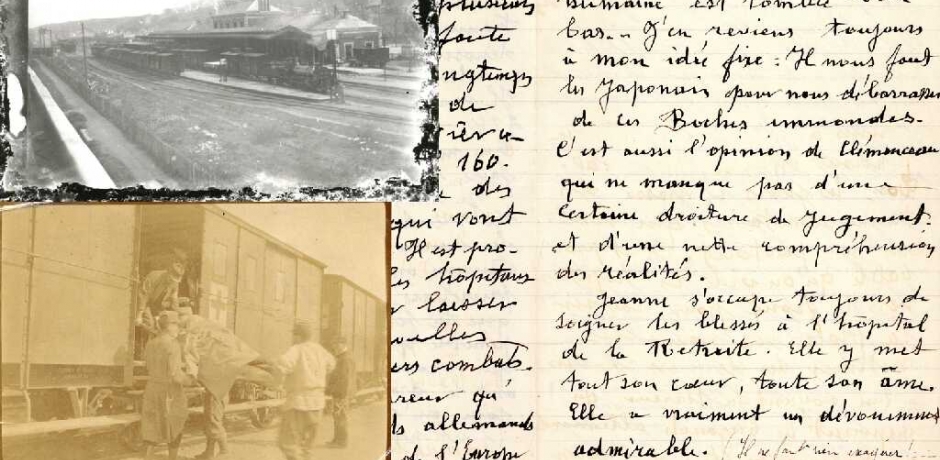 plusieurs
faute
longtemps
de
160.
des
qui vont
Il est pro-
les hôpitaux
laisser
combats.
qu'
allemands
de l'Europe
humaine est tombée
bas... J'en reviens toujours
à mon idée fixe : Il nous faut
les Japonais pour nous débarrasser
de ces Boches immondes.
C'est aussi l'opinion de Clémenceau
qui ne manque pas d'une
certaine droiture de jugement
et d'une nette compréhension
des réalités.
Jeanne s'occupe toujours de
soigner les blessés à l'hôpital
de la Retraite. Elle y met
tout son cœur, toute son âme.
Elle a vraiment un dévouement
admirable. (Il ne faut rien exagérer!